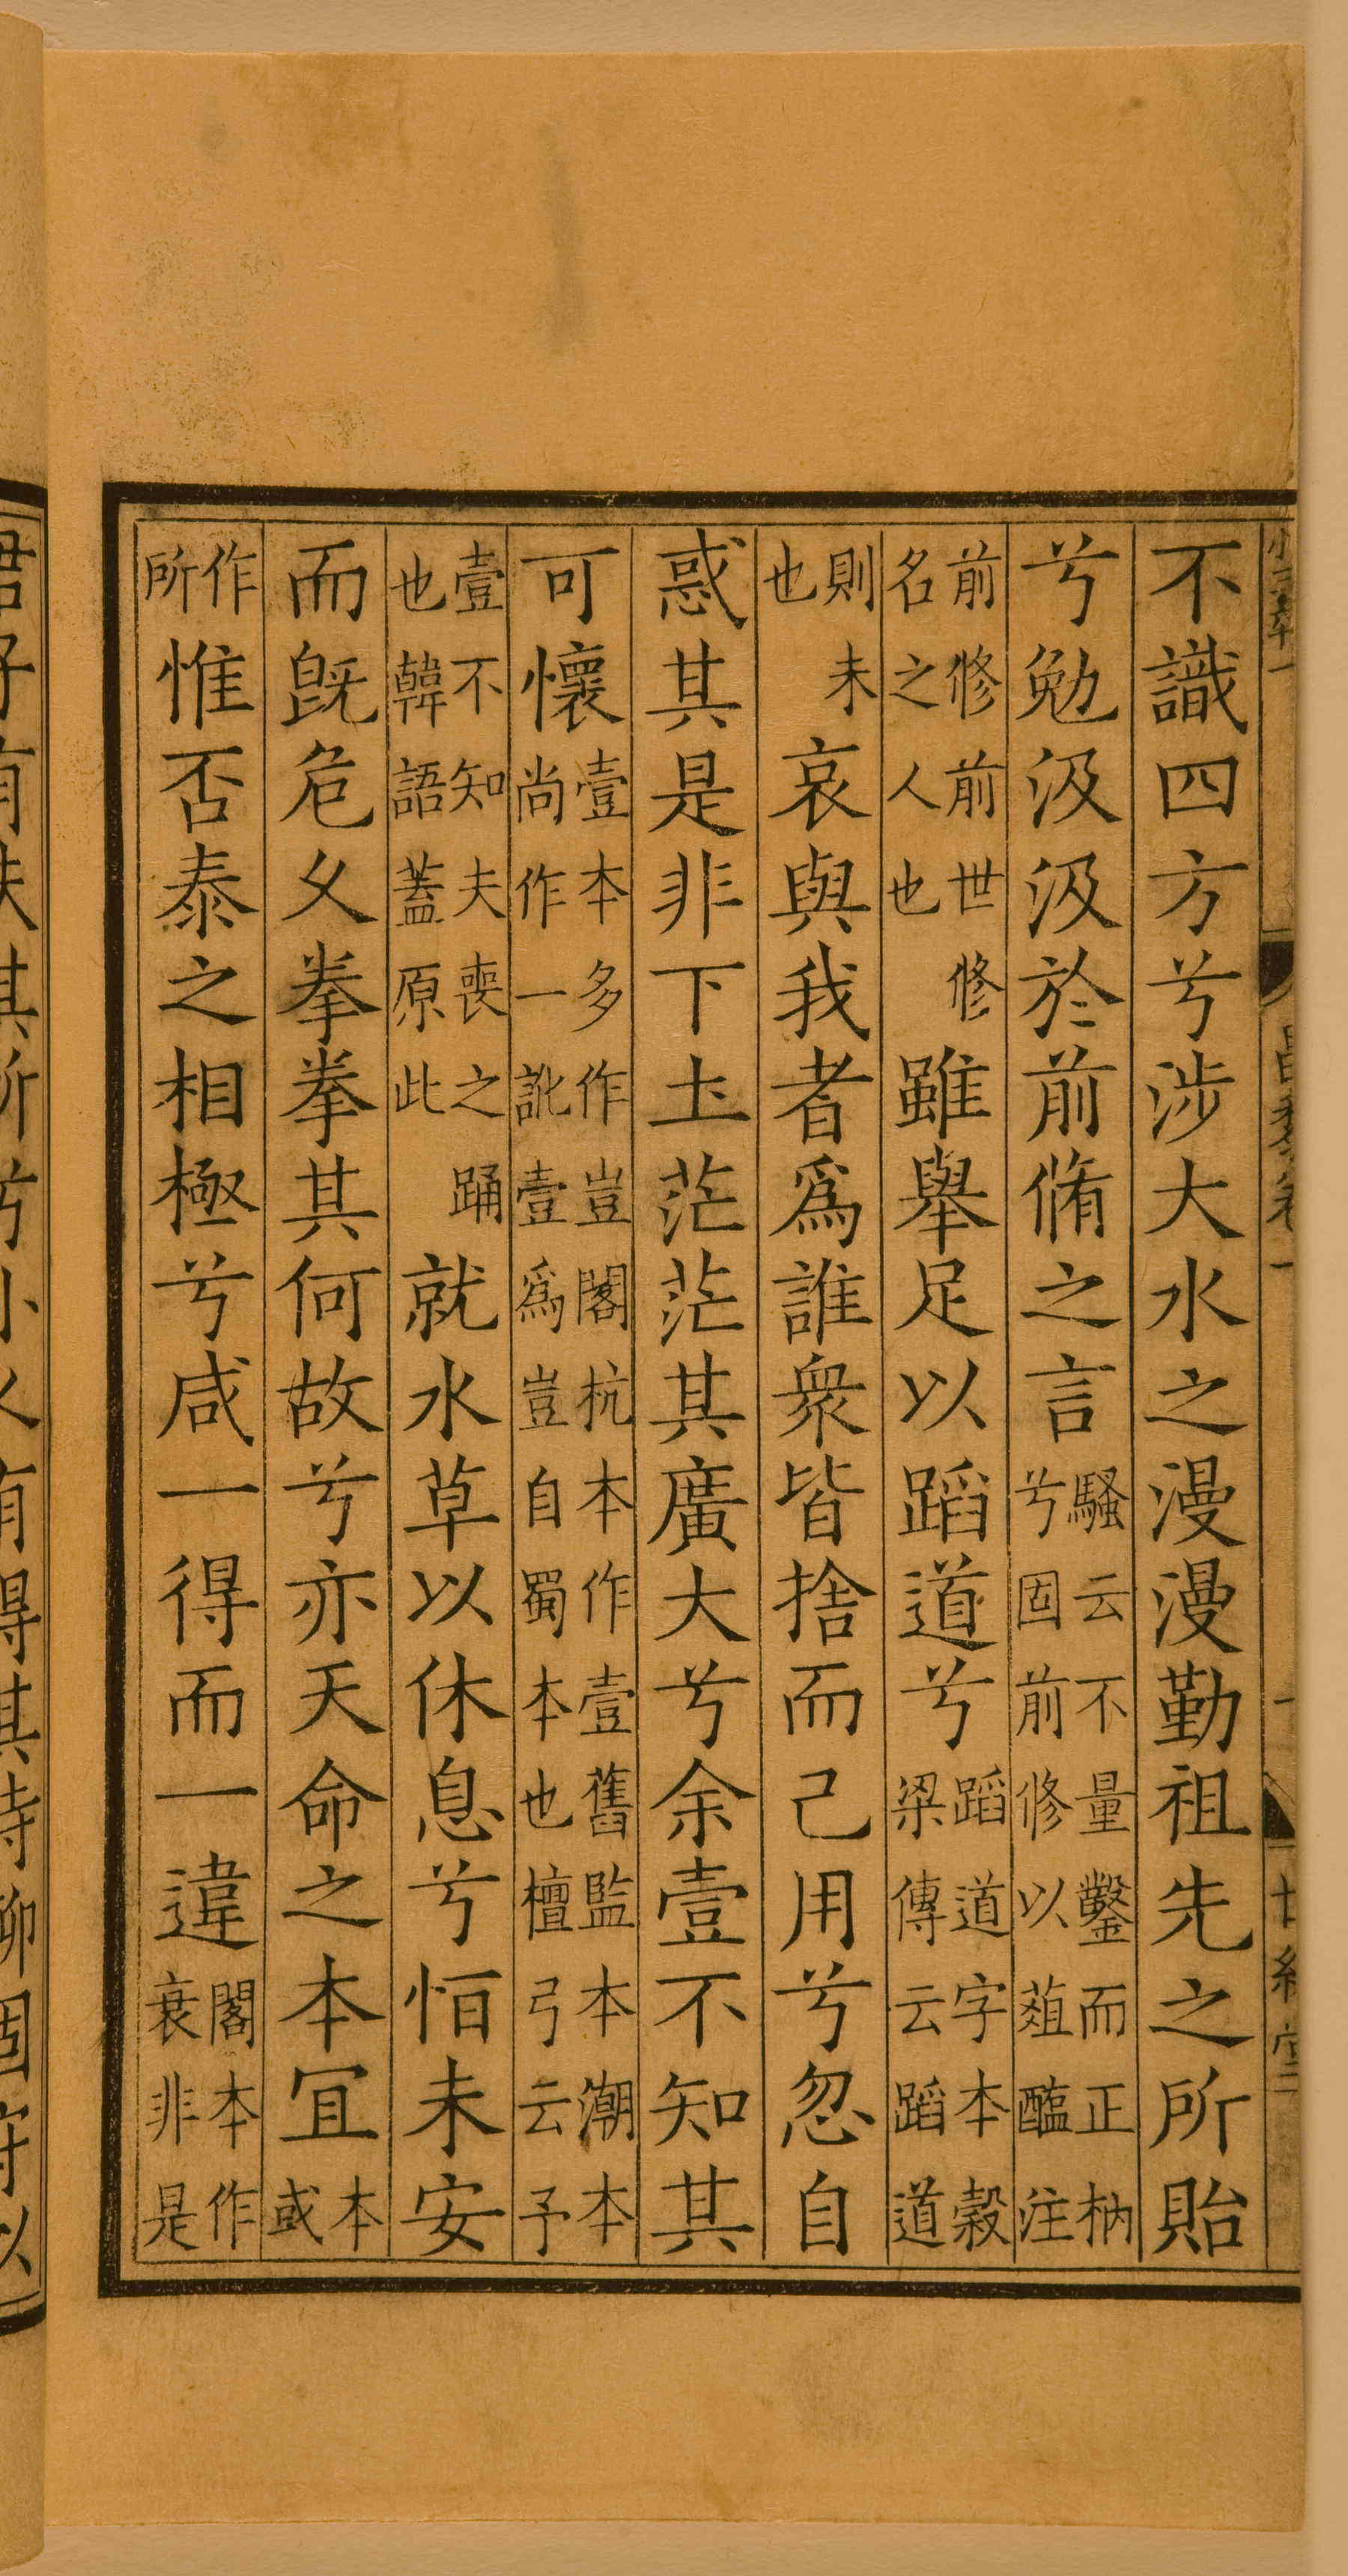 昌黎卷一
不識四方兮涉大水之漫漫勤祖先之所貽
兮勉汲汲於前脩之言騷云不量鑿而正枘
兮固前修以葅醢注
前修前世修
名之人也雖舉足以蹈道兮蹈道字本穀
梁傳云蹈道
則未
也哀與我者爲誰衆皆捨而己用兮忽自
惑其是非下土茫茫其廣大兮余壹不知其
可懷壹本多作豈閣杭本作壹舊監本潮本
尚作一訛壹爲豈自蜀本也檀弓云予
壹不知夫喪之踊
也韓語蓋原此就水草以休息兮恒未安
而既危久拳拳其何故兮亦天命之本宜本
或
作
所惟否泰之相極兮咸一得而一違閣本作
衰非是
君子有失其所兮小人有得其時聊固守以